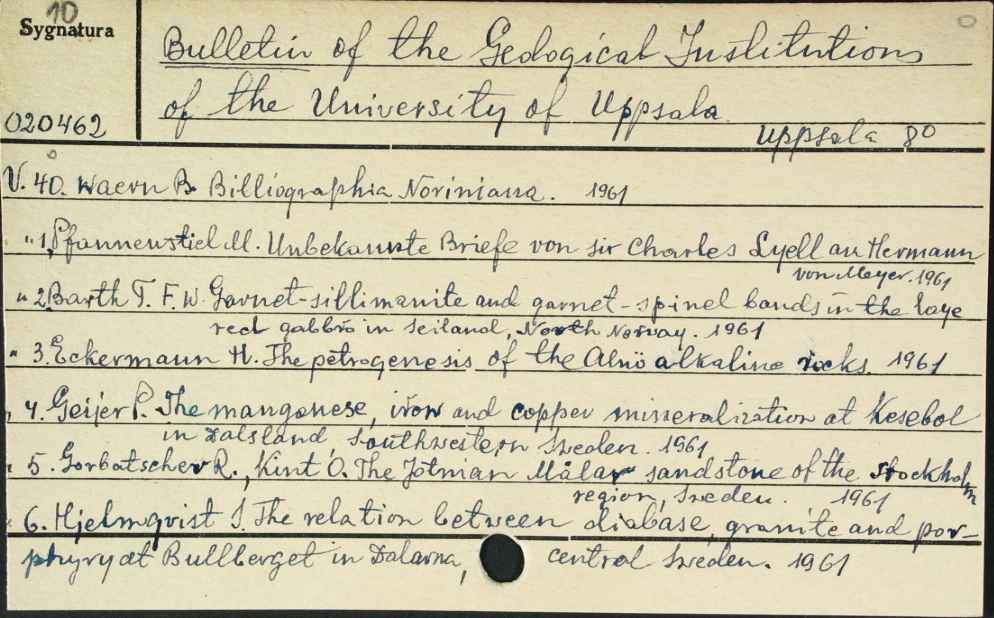 10
Sygnatura
020462
Bulletin of the Geological Institutions
of the University of Uppsala
Uppsala 8°
V. 40. Waern B. Billiographia Noriniana. 1961
" 1. Pfannenstiel M. Unbekannte Briefe von sir Charles Lyell an Hermann
von Meyer. 1961
" 2. Barth T. F. W. Garnet-sillimanite and garnet-spinel bands in the laye
red gabbro in Seiland, North Norway. 1961
" 3. Eckermann H. The petrogenesis of the Alnö alkaline rocks. 1961
" 4. Geijer P. The manganese, iron and copper misseralization at Kesebol
in Dalsland Southwestern Sweden. 1961
" 5. Gorbatschev R., Kint O. The Jotnian Mälar sandstone of the Stockholm
region, Sweden. 1961
" 6. Hjelmqvist S. The relation between diabase, granite and por-
phyry at Bullberget in Dalarna, central Sweden. 1961